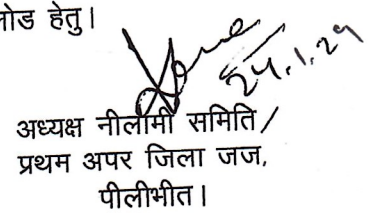 लोड हेतु।
24.1.24
अध्यक्ष नीलामी समिति /
प्रथम अपर जिला जज,
पीलीभीत।